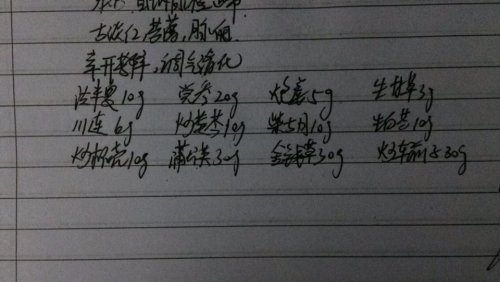 舌淡红苔薄，脉细
辛开苦降，调气化
法半夏10g 党参20g 炮姜5g 生甘草3g
川连6g 炒黄芩10g 柴胡10g 生白芍10g
炒枳壳10g 蒲公英30g 金钱草30g 炒车前子30g